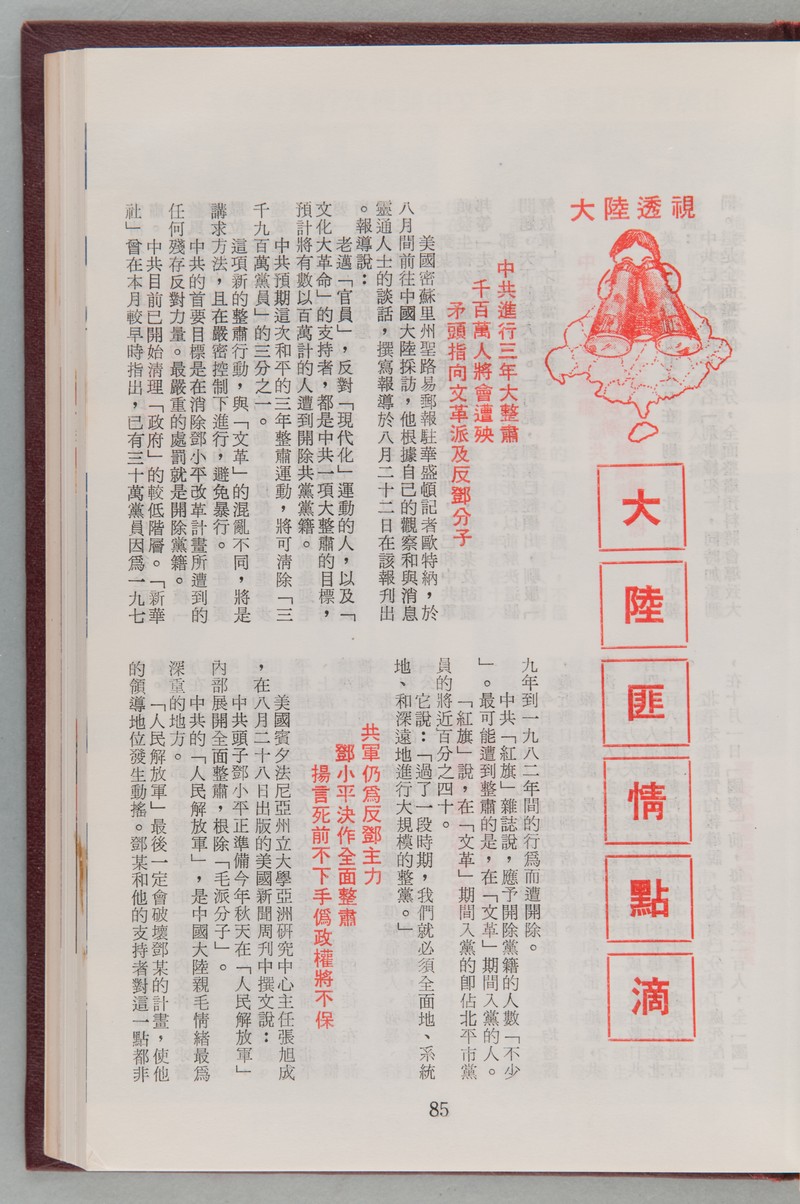 大陸透視
大陸匪情點滴
中共進行三年大整肅
千百萬人將會遭殃
矛頭指向文革派及反鄧分子
美國密蘇里州聖路易郵報駐華盛頓記者歐特納，於
八月間前往中國大陸採訪，他根據自己的觀察和與消息
靈通人士的談話，撰寫報導於八月二十二日在該報刋出
。報導說：
老邁「官員」，反對「現代化」運動的人，以及「
文化大革命」的支持者，都是中共一項大整肅的目標，
預計將有數以百萬計的人遭到開除共黨黨籍。
中共預期這次和平的三年整肅運動，將可淸除「三
千九百萬黨員」的三分之一。
這項新的整肅行動，與「文革」的混亂不同，將是
講求方法，且在嚴密控制下進行，避免暴行。
中共的首要目標是在消除鄧小平改革計畫所遭到的
任何殘存反對力量。最嚴重的處罰就是開除黨籍。
中共目前已開始淸理「政府」的較低階層。「新華
社」曾在本月較早時指出，已有三十萬黨員因爲一九七
九年到一九八二年間的行爲而遭開除。
中共「紅旗」雜誌說，應予開除黨籍的人數「不少
」。最可能遭到整肅的是，在「文革」期間入黨的人。
「紅旗」說，在「文革」期間入黨的卽佔北平市黨
員的將近百分之四十。
它說：「過了一段時期，我們就必須全面地、系統
地、和深遠地進行大規模的整黨。」
共軍仍爲反鄧主力
鄧小平決作全面整肅
揚言死前不下手僞政權將不保
美國賓夕法尼亞州立大學亞洲硏究中心主任張旭成
，在八月二十八日出版的美國新聞周刋中撰文說：
中共頭子鄧小平正準備今年秋天在「人民解放軍」
內部展開全面整肅，根除「毛派分子」。
中共的「人民解放軍」，是中國大陸親毛情緒最爲
深重的地方。
「人民解放軍」最後一定會破壞鄧某的計畫，使他
的領導地位發生動搖。鄧某和他的支持者對這一點都非
85